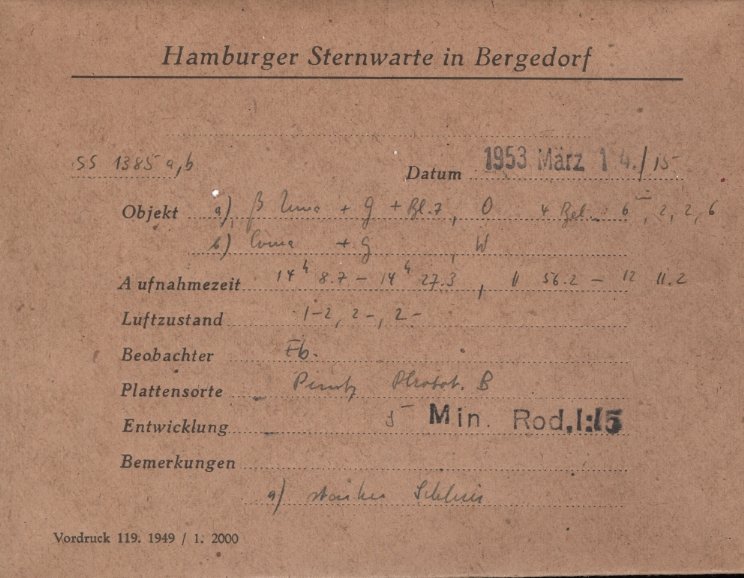 Hamburger Sternwarte in Bergedorf
SS 1385 a,b
Datum 1953 März 1 4./15
Objekt a) β Uma + G + Bl. 7, O 4 Bel. 6 , 2, 2, 6
b) Coma + G , W
Aufnahmezeit 14 h 8.7 – 14 h 27.3 , 11 56.2 – 12 11.2
Luftzustand 1-2, 2-, 2-
Beobachter
Plattensorte Perutz B
Entwicklung 5 Min. Rod. 1:15
Bemerkungen
a) starker Schleier
Vordruck 119. 1949 / 1. 2000